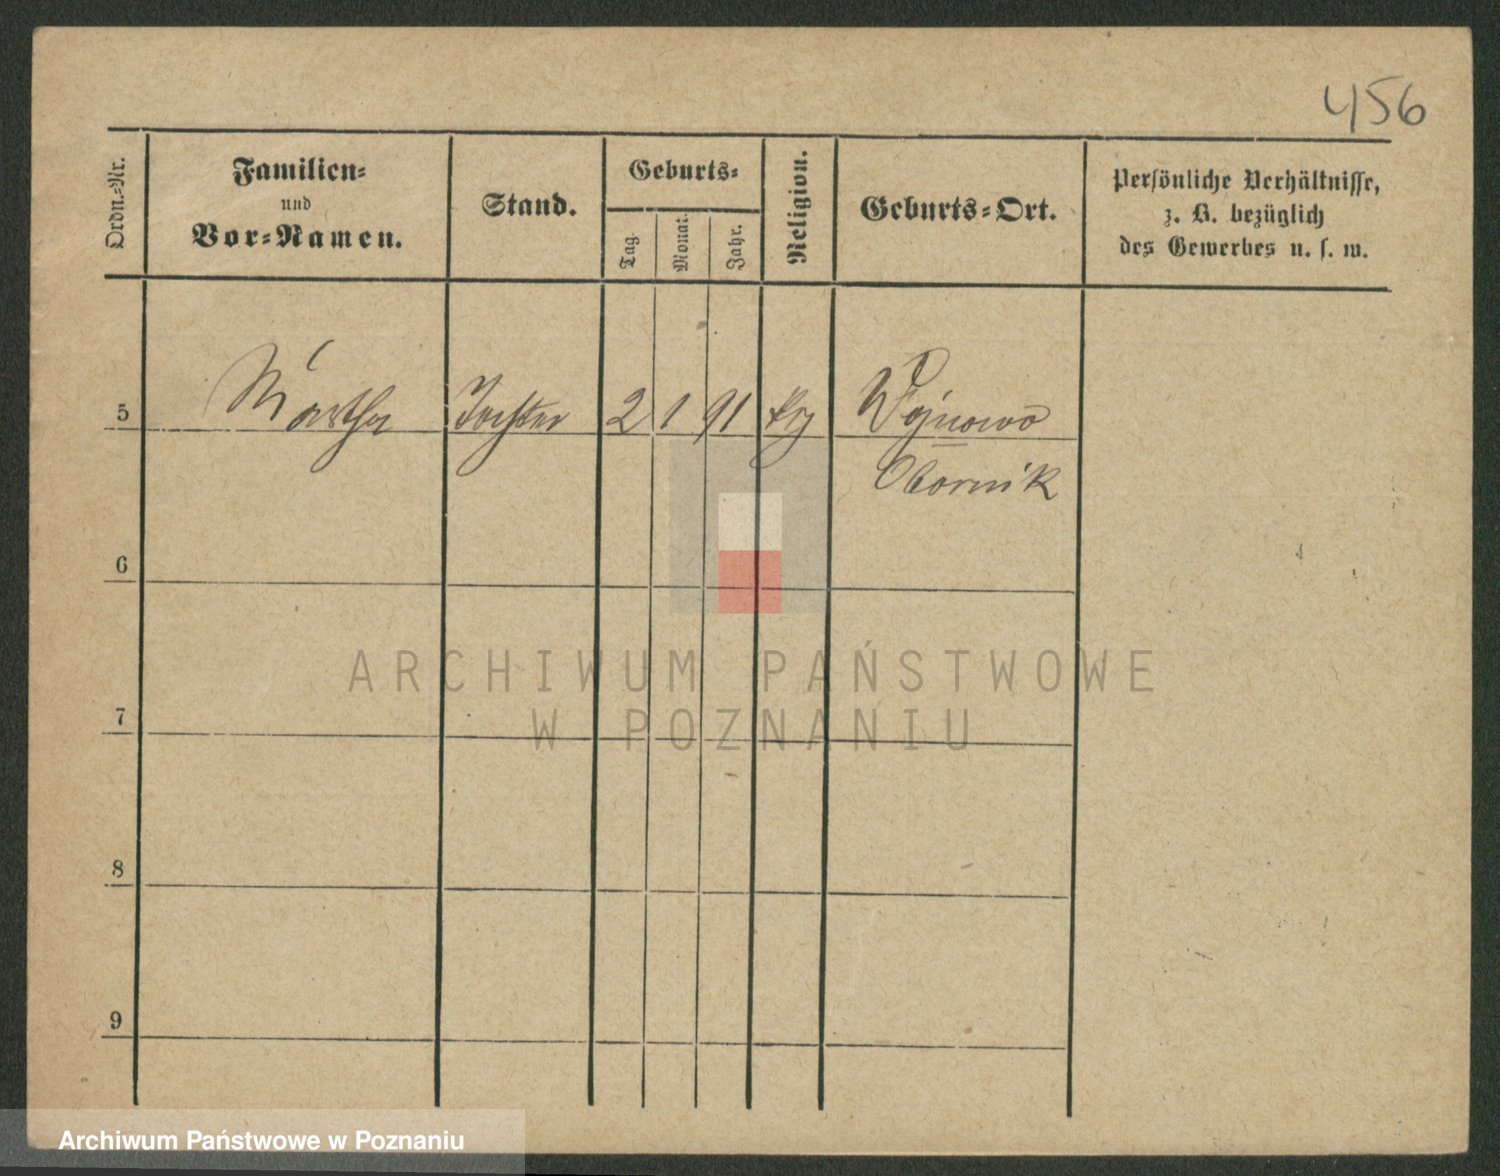 456
Ordn.-Nr.
Familien-
und
Vor-Namen.
Stand.
Geburts-
Tag
Monat.
Jahr.
Religion.
Geburts-Ort.
Persönliche Verhältnisse,
z. B. bezüglich
des Gewerbes u. s. w.
5 Martha Tochter 2 1 91 Wojnowo
Obornik
6
7
8
9
ARCHIWUM PAŃSTWOWE
W POZNANIU
Archiwum Państwowe w Poznaniu